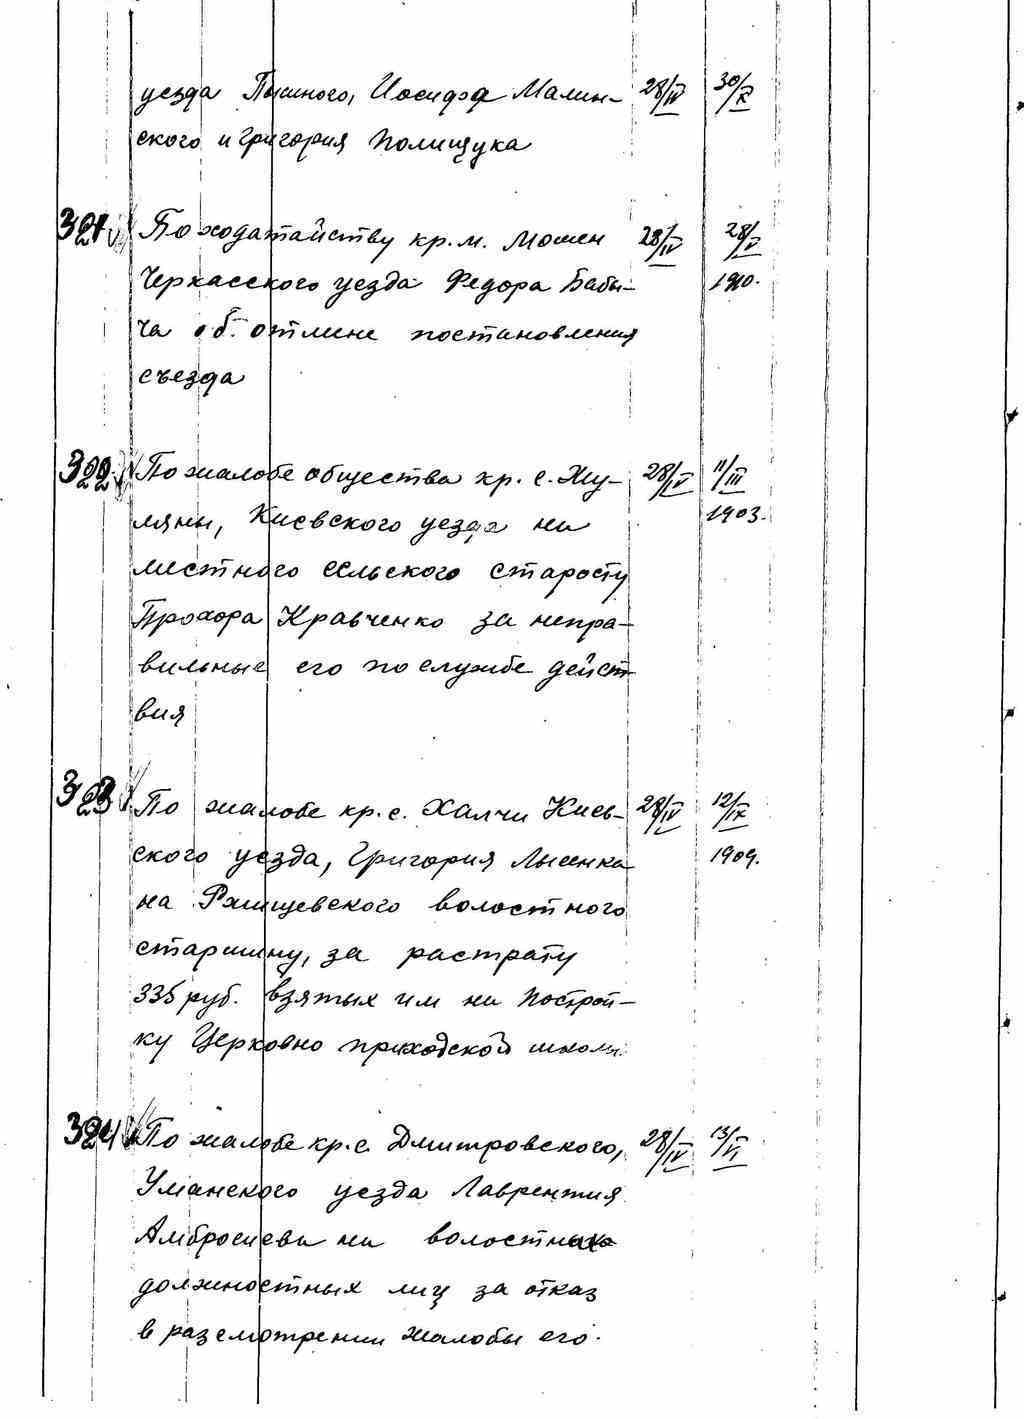 уезда Пышного, Иосифа Малин- 28/IV 30/IX
ского и Григория Полищука
321 По ходатайству кр. м. Мошен 28/IV 28/V
Черкасского уезда Федора Бабы- 1910.
ча об отмене постановления
съезда
322 По жалобе общества кр. с. Жу- 28/IV 11/III
ляны, Киевского уезда на 1903.
местного сельского старосту
Прохора Кравченко за непра-
вильные его по службе дейст
вия
323 По жалобе кр. с. Халчи Киев- 28/IV 12/IX
ского уезда, Григория Лысенка 1909.
на Ржищевского волостного
старшину, за растрату
335 руб. взятых им на построй-
ку Церковно приходской школы.
324 По жалобе кр. с. Дмитровского, 28/IV 13/VI
Уманского уезда Лаврентия
Амбросиева на волостных
должностных лиц за отказ
в разсмотрении жалобы его.